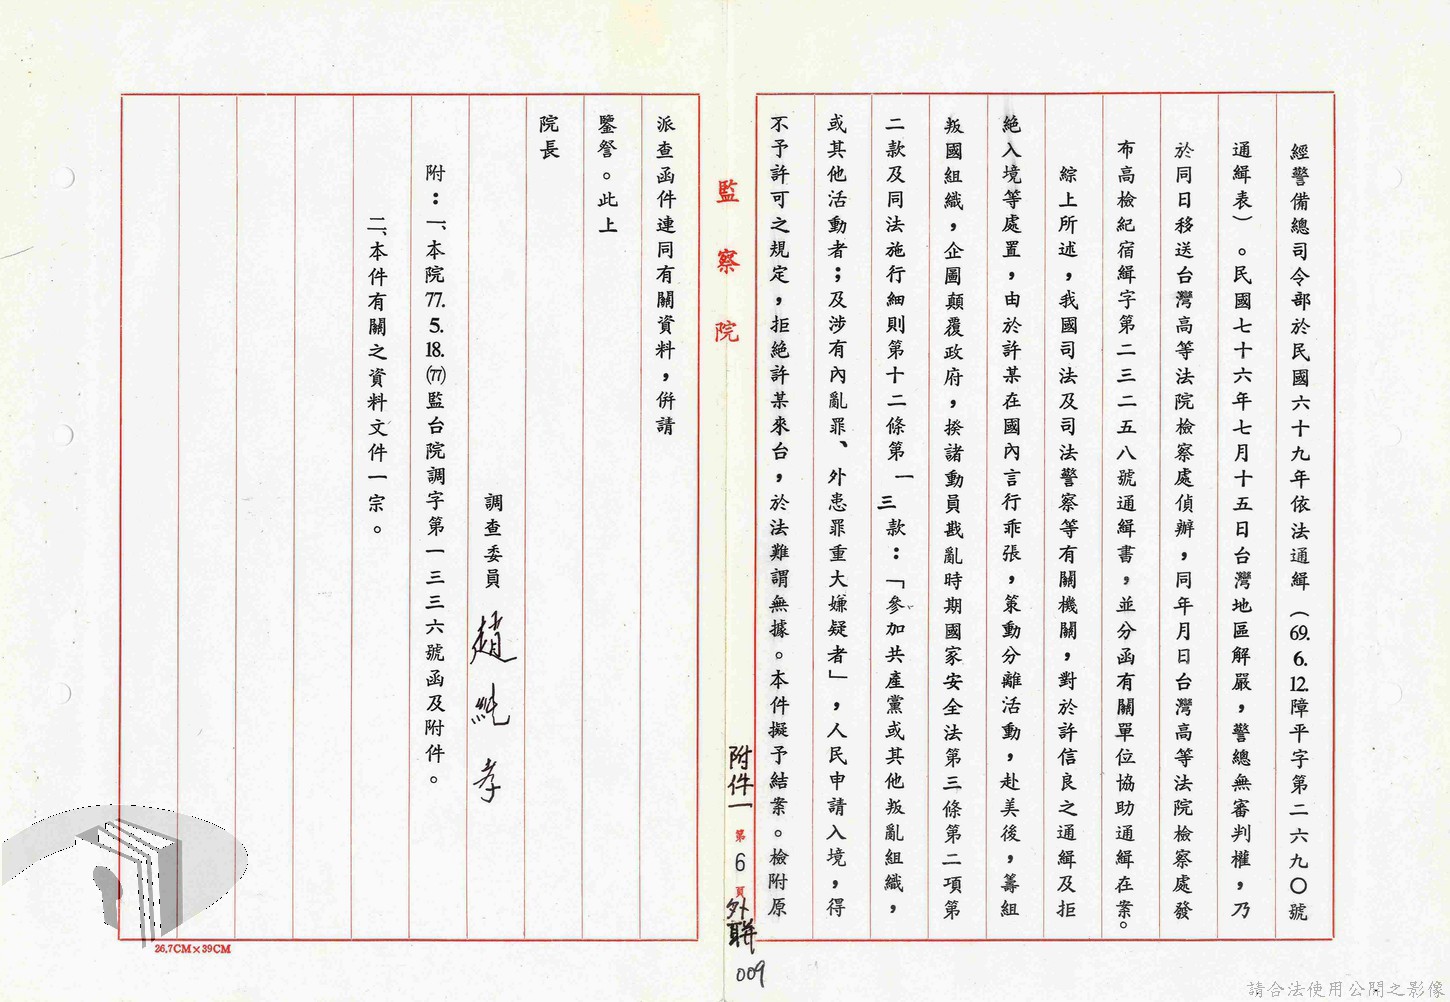 經警備總司令部於民國六十九年依法通緝（69.6.12.障平字第二六九〇號
通緝表）。民國七十六年七月十五日台灣地區解嚴，警總無審判權，乃
於同日移送台灣高等法院檢察處偵辦，同年月日台灣高等法院檢察處發
布高檢紀宿緝字第二三二五八號通緝書，並分函有關單位協助通緝在案。
綜上所述，我國司法及司法警察等有關機關，對於許信良之通緝及拒
絕入境等處置，由於許某在國內言行乖張，策動分離活動，赴美後，籌組
叛國組織，企圖顛覆政府，揆諸動員戡亂時期國家安全法第三條第二項第
二款及同法施行細則第十二條第一三款：「參加共產黨或其他叛亂組織，
或其他活動者；及涉有內亂罪、外患罪重大嫌疑者」，人民申請入境，得
不予許可之規定，拒絕許某來台，於法難謂無據。本件擬予結案。檢附原
監察院
附件一
第6頁
外聯
009
派查函件連同有關資料，併請
鑒詧。此上
院長
調查委員 趙純孝
附：一、本院77.5.18.(77)監台院調字第一三三六號函及附件。
二、本件有關之資料文件一宗。
26.7CM×39CM
請合法使用公開之影像